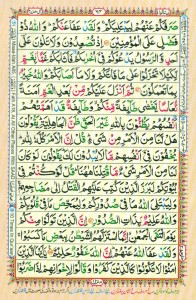 صَرَفَكُمْ عَنْهُمْ لِيَبْتَلِيَكُمْ ۚ وَلَقَدْ عَفَا عَنْكُمْ ؕ وَاللّٰهُ ذُوْ
فَضْلٍ عَلَى الْمُؤْمِنِيْنَ اِذْ تُصْعِدُوْنَ وَلَا تَلْوٗنَ عَلٰٓى
اَحَدٍ وَّالرَّسُوْلُ يَدْعُوْكُمْ فِيْٓ اُخْرٰىكُمْ فَاَثَابَكُمْ غَمًّۢا بِغَمٍّ
لِّكَيْلَا تَحْزَنُوْا عَلٰى مَا فَاتَكُمْ وَلَا مَآ اَصَابَكُمْ ؕ وَاللّٰهُ
خَبِيْرٌۢ بِمَا تَعْمَلُوْنَ ثُمَّ اَنْزَلَ عَلَيْكُمْ مِّنْۢ بَعْدِ الْغَمِّ اَمَنَةً
نُّعَاسًا يَّغْشٰى طَآئِفَةً مِّنْكُمْ ۙ وَطَآئِفَةٌ قَدْ اَهَمَّتْهُمْ
اَنْفُسُهُمْ يَظُنُّوْنَ بِاللّٰهِ غَيْرَ الْحَقِّ ظَنَّ الْجَاهِلِيَّةِ ؕ يَقُوْلُوْنَ
هَلْ لَّنَا مِنَ الْاَمْرِ مِنْ شَيْءٍ ؕ قُلْ اِنَّ الْاَمْرَ كُلَّهٗ لِلّٰهِ ؕ
يُخْفُوْنَ فِيْٓ اَنْفُسِهِمْ مَّا لَا يُبْدُوْنَ لَكَ ؕ يَقُوْلُوْنَ لَوْ كَانَ
لَنَا مِنَ الْاَمْرِ شَيْءٌ مَّا قُتِلْنَا هٰهُنَا ؕ قُلْ لَّوْ كُنْتُمْ فِيْ
بُيُوْتِكُمْ لَبَرَزَ الَّذِيْنَ كُتِبَ عَلَيْهِمُ الْقَتْلُ اِلٰى مَضَاجِعِهِمْ ۚ
وَلِيَبْتَلِيَ اللّٰهُ مَا فِيْ صُدُوْرِكُمْ وَلِيُمَحِّصَ مَا فِيْ قُلُوْبِكُمْ ؕ
وَاللّٰهُ عَلِيْمٌۢ بِذَاتِ الصُّدُوْرِ اِنَّ الَّذِيْنَ تَوَلَّوْا مِنْكُمْ
يَوْمَ الْتَقَى الْجَمْعٰنِ ۙ اِنَّمَا اسْتَزَلَّهُمُ الشَّيْطٰنُ بِبَعْضِ مَا كَسَبُوْا ۚ
وَلَقَدْ عَفَا اللّٰهُ عَنْهُمْ ؕ اِنَّ اللّٰهَ غَفُوْرٌ حَلِيْمٌ يٰٓاَيُّهَا الَّذِيْنَ
اٰمَنُوْا لَا تَكُوْنُوْا كَالَّذِيْنَ كَفَرُوْا وَقَالُوْا لِاِخْوَانِهِمْ اِذَا ضَرَبُوْا